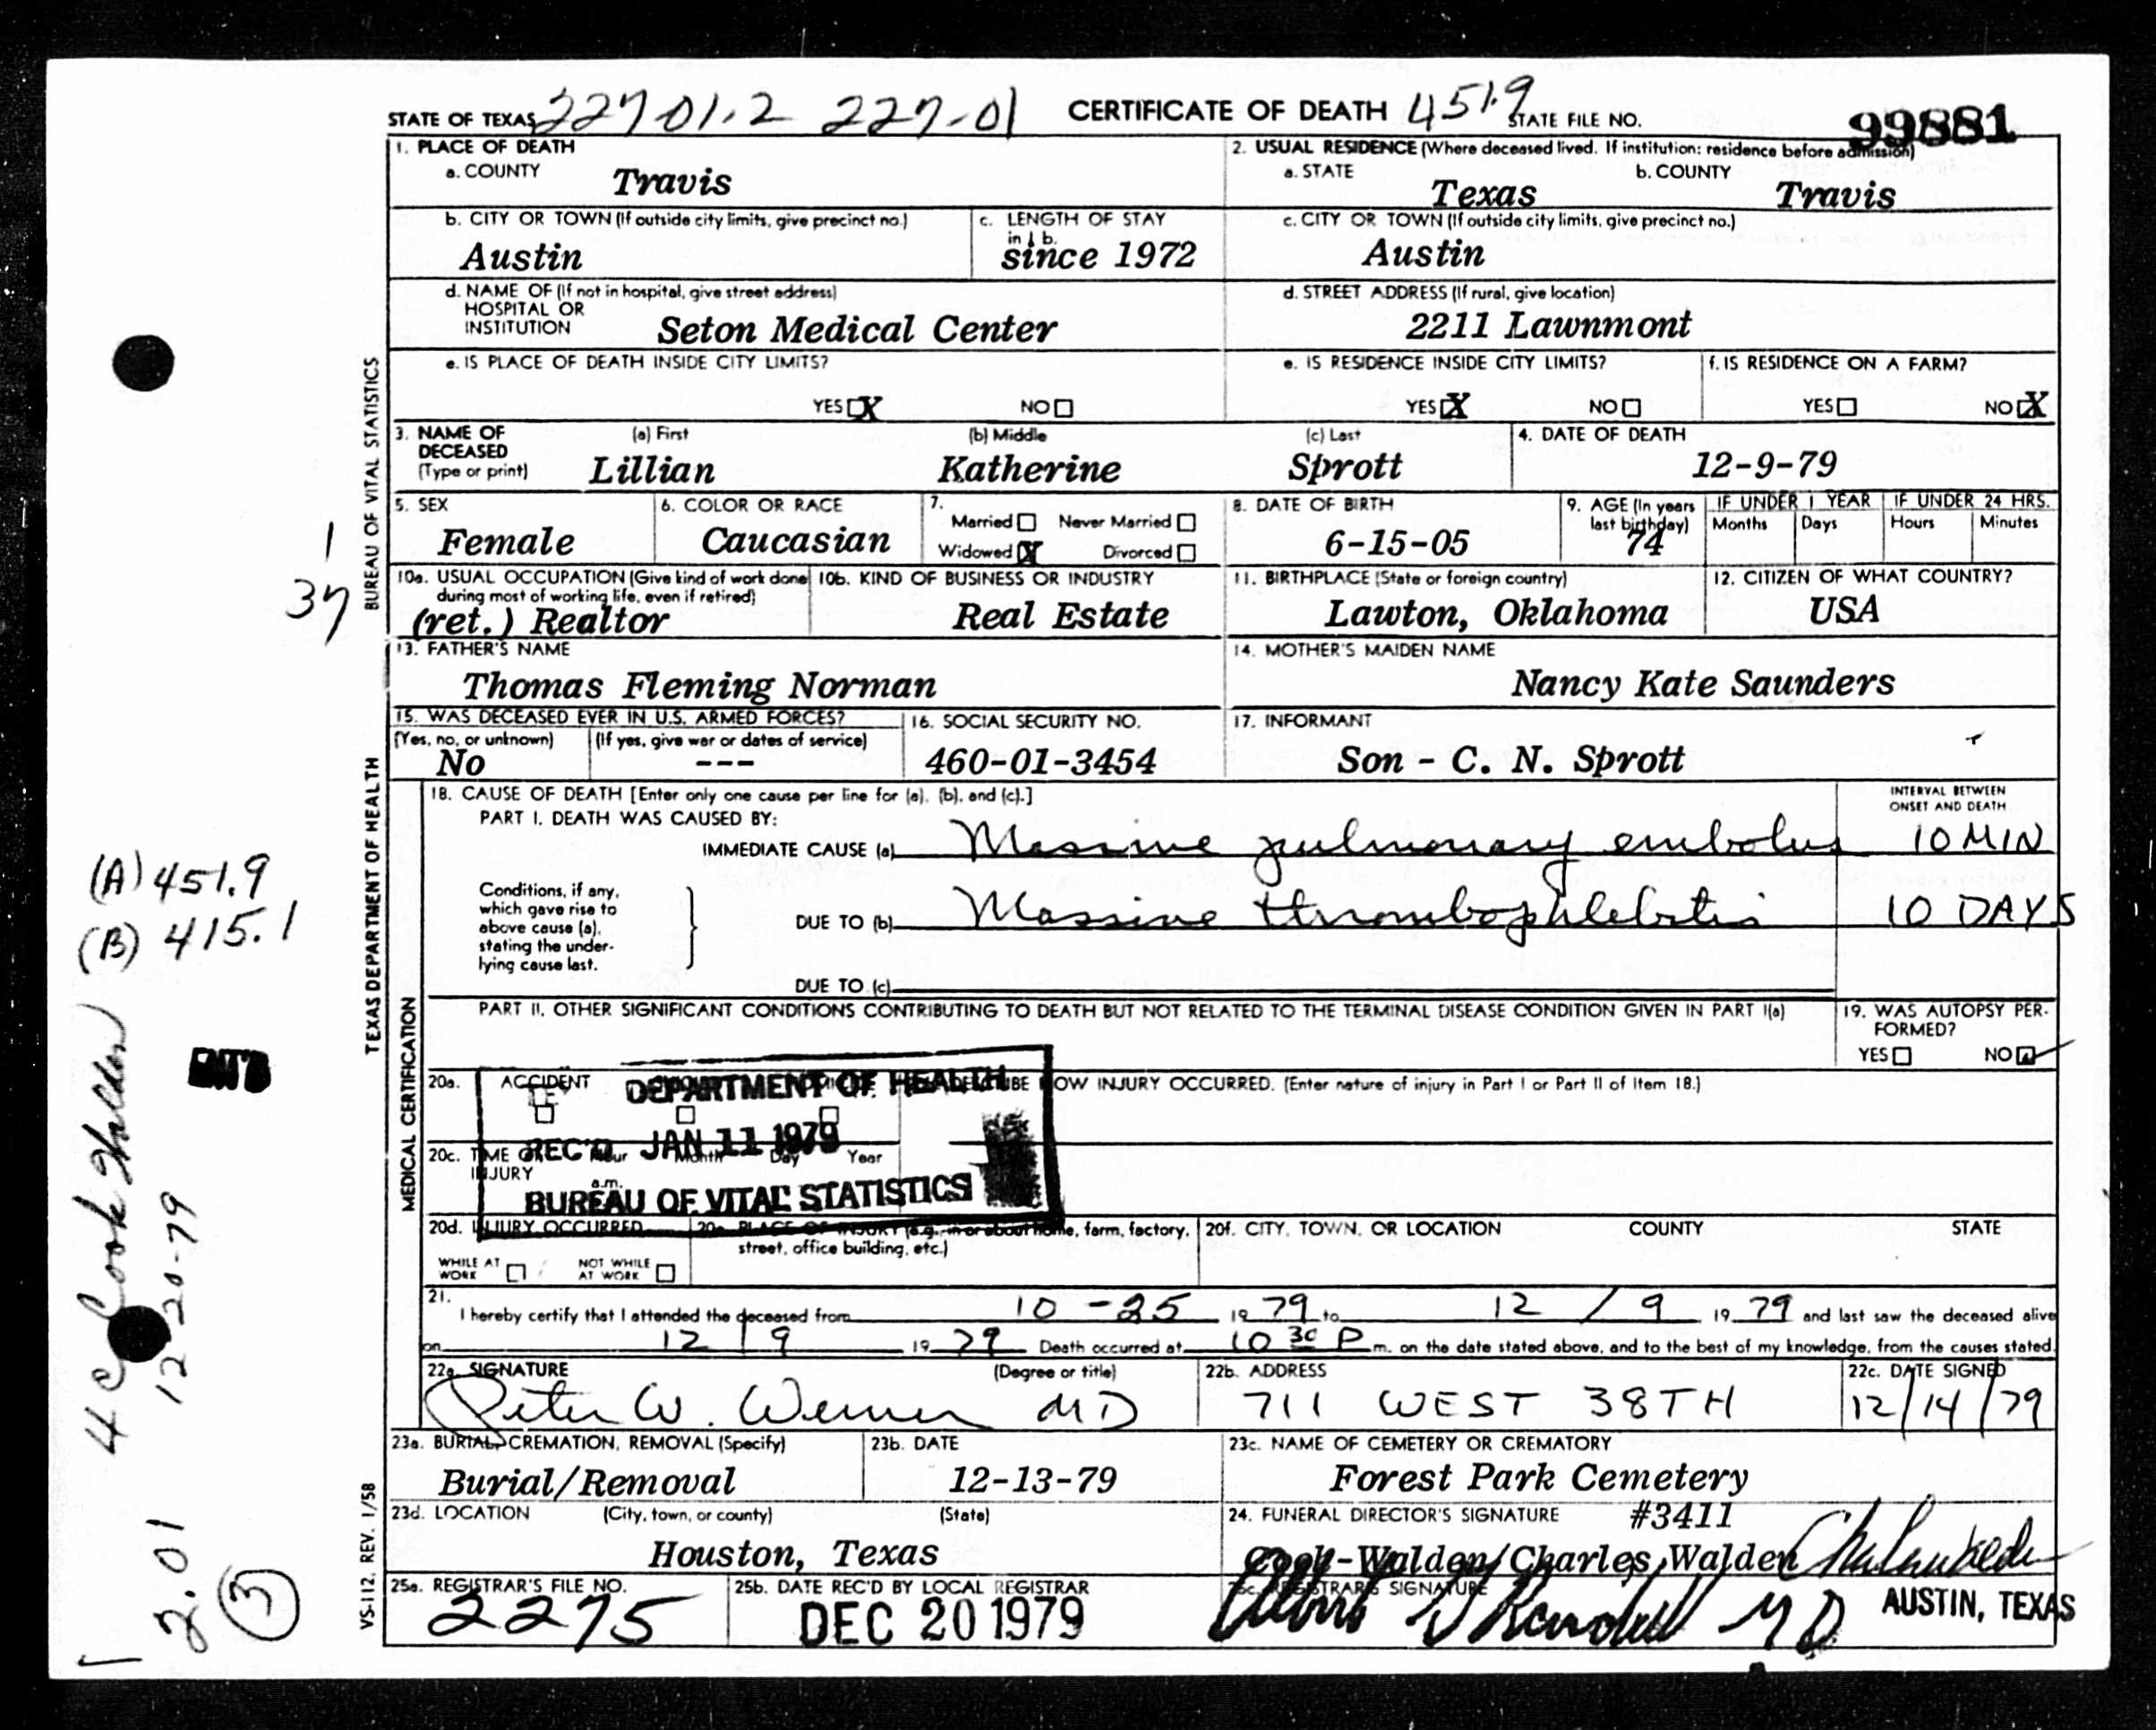 STATE OF TEXAS 22701.2 227-01 CERTIFICATE OF DEATH 451.9 STATE FILE NO. 99881
1. PLACE OF DEATH
a. COUNTY Travis
2. USUAL RESIDENCE (Where deceased lived. If institution: residence before admission)
a. STATE Texas b. COUNTY Travis
b. CITY OR TOWN (If outside city limits, give precinct no.) Austin
c. LENGTH OF STAY in 1 b. since 1972
c. CITY OR TOWN (If outside city limits, give precinct no.) Austin
d. NAME OF (If not in hospital, give street address)
HOSPITAL OR
INSTITUTION Seton Medical Center
d. STREET ADDRESS (If rural, give location)
2211 Lawnmont
e. IS PLACE OF DEATH INSIDE CITY LIMITS?
YES X NO
e. IS RESIDENCE INSIDE CITY LIMITS?
YES X NO
f. IS RESIDENCE ON A FARM?
YES NO X
3. NAME OF DECEASED (Type or print)
(a) First Lillian (b) Middle Katherine (c) Last Sprott
4. DATE OF DEATH
12-9-79
5. SEX
Female
6. COLOR OR RACE
Caucasian
7.
Married Never Married
Widowed X Divorced
8. DATE OF BIRTH
6-15-05
9. AGE (In years last birthday) 74
IF UNDER 1 YEAR IF UNDER 24 HRS.
Months Days Hours Minutes
10a. USUAL OCCUPATION (Give kind of work done during most of working life, even if retired)
(ret.) Realtor
10b. KIND OF BUSINESS OR INDUSTRY
Real Estate
11. BIRTHPLACE (State or foreign country)
Lawton, Oklahoma
12. CITIZEN OF WHAT COUNTRY?
USA
13. FATHER'S NAME
Thomas Fleming Norman
14. MOTHER'S MAIDEN NAME
Nancy Kate Saunders
15. WAS DECEASED EVER IN U.S. ARMED FORCES?
(Yes, no, or unknown) (If yes, give war or dates of service)
No ---
16. SOCIAL SECURITY NO.
460-01-3454
17. INFORMANT
Son - C. N. Sprott
18. CAUSE OF DEATH [Enter only one cause per line for (a), (b), and (c).]
INTERVAL BETWEEN ONSET AND DEATH
PART I. DEATH WAS CAUSED BY:
IMMEDIATE CAUSE (a) Massive pulmonary embolus 10 MIN
Conditions, if any,
which gave rise to
above cause (a),
stating the under-
lying cause last.
DUE TO (b) Massive thrombophlebitis 10 DAYS
DUE TO (c)
PART II. OTHER SIGNIFICANT CONDITIONS CONTRIBUTING TO DEATH BUT NOT RELATED TO THE TERMINAL DISEASE CONDITION GIVEN IN PART I(a)
19. WAS AUTOPSY PER-
FORMED?
YES NO
20a. ACCIDENT
OW INJURY OCCURRED. (Enter nature of injury in Part I or Part II of Item 18.)
DEPARTMENT OF HEALTH
REC'D JAN 11 1979
BUREAU OF VITAL STATISTICS
20c. TIME OF INJURY Hour a.m. Month Day Year
20d. INJURY OCCURRED
WHILE AT WORK NOT WHILE AT WORK
20e. PLACE OF INJURY (e.g., in or about home, farm, factory,
street, office building, etc.)
20f. CITY, TOWN, OR LOCATION COUNTY STATE
21.
I hereby certify that I attended the deceased from 10-25 19 79 to 12/9 19 79 and last saw the deceased alive
on 12/9 19 79 Death occurred at 10 30 P m. on the date stated above, and to the best of my knowledge, from the causes stated.
22a. SIGNATURE (Degree or title)
Peter W. Werner MD
22b. ADDRESS
711 WEST 38TH
22c. DATE SIGNED
12/14/79
23a. BURIAL, CREMATION, REMOVAL (Specify)
Burial/Removal
23b. DATE
12-13-79
23c. NAME OF CEMETERY OR CREMATORY
Forest Park Cemetery
23d. LOCATION (City, town, or county) (State)
Houston, Texas
24. FUNERAL DIRECTOR'S SIGNATURE #3411
Cook-Walden/Charles Walden
25a. REGISTRAR'S FILE NO.
2275
25b. DATE REC'D BY LOCAL REGISTRAR
DEC 20 1979
25c. REGISTRAR'S SIGNATURE
AUSTIN, TEXAS
BUREAU OF VITAL STATISTICS
TEXAS DEPARTMENT OF HEALTH
MEDICAL CERTIFICATION
VS-112, REV. 1/58
1
37
(A) 451.9
(B) 415.1
4 c Cook Walden
12-20-79
2.01
3